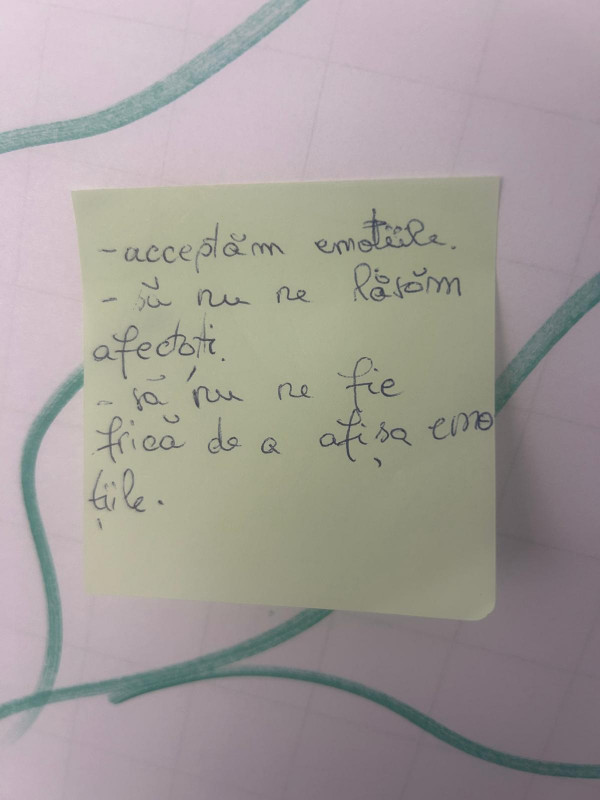 - acceptăm emoțiile.
- să nu ne lăsăm
afectați.
- să nu ne fie
frică de a afișa emo
țiile.